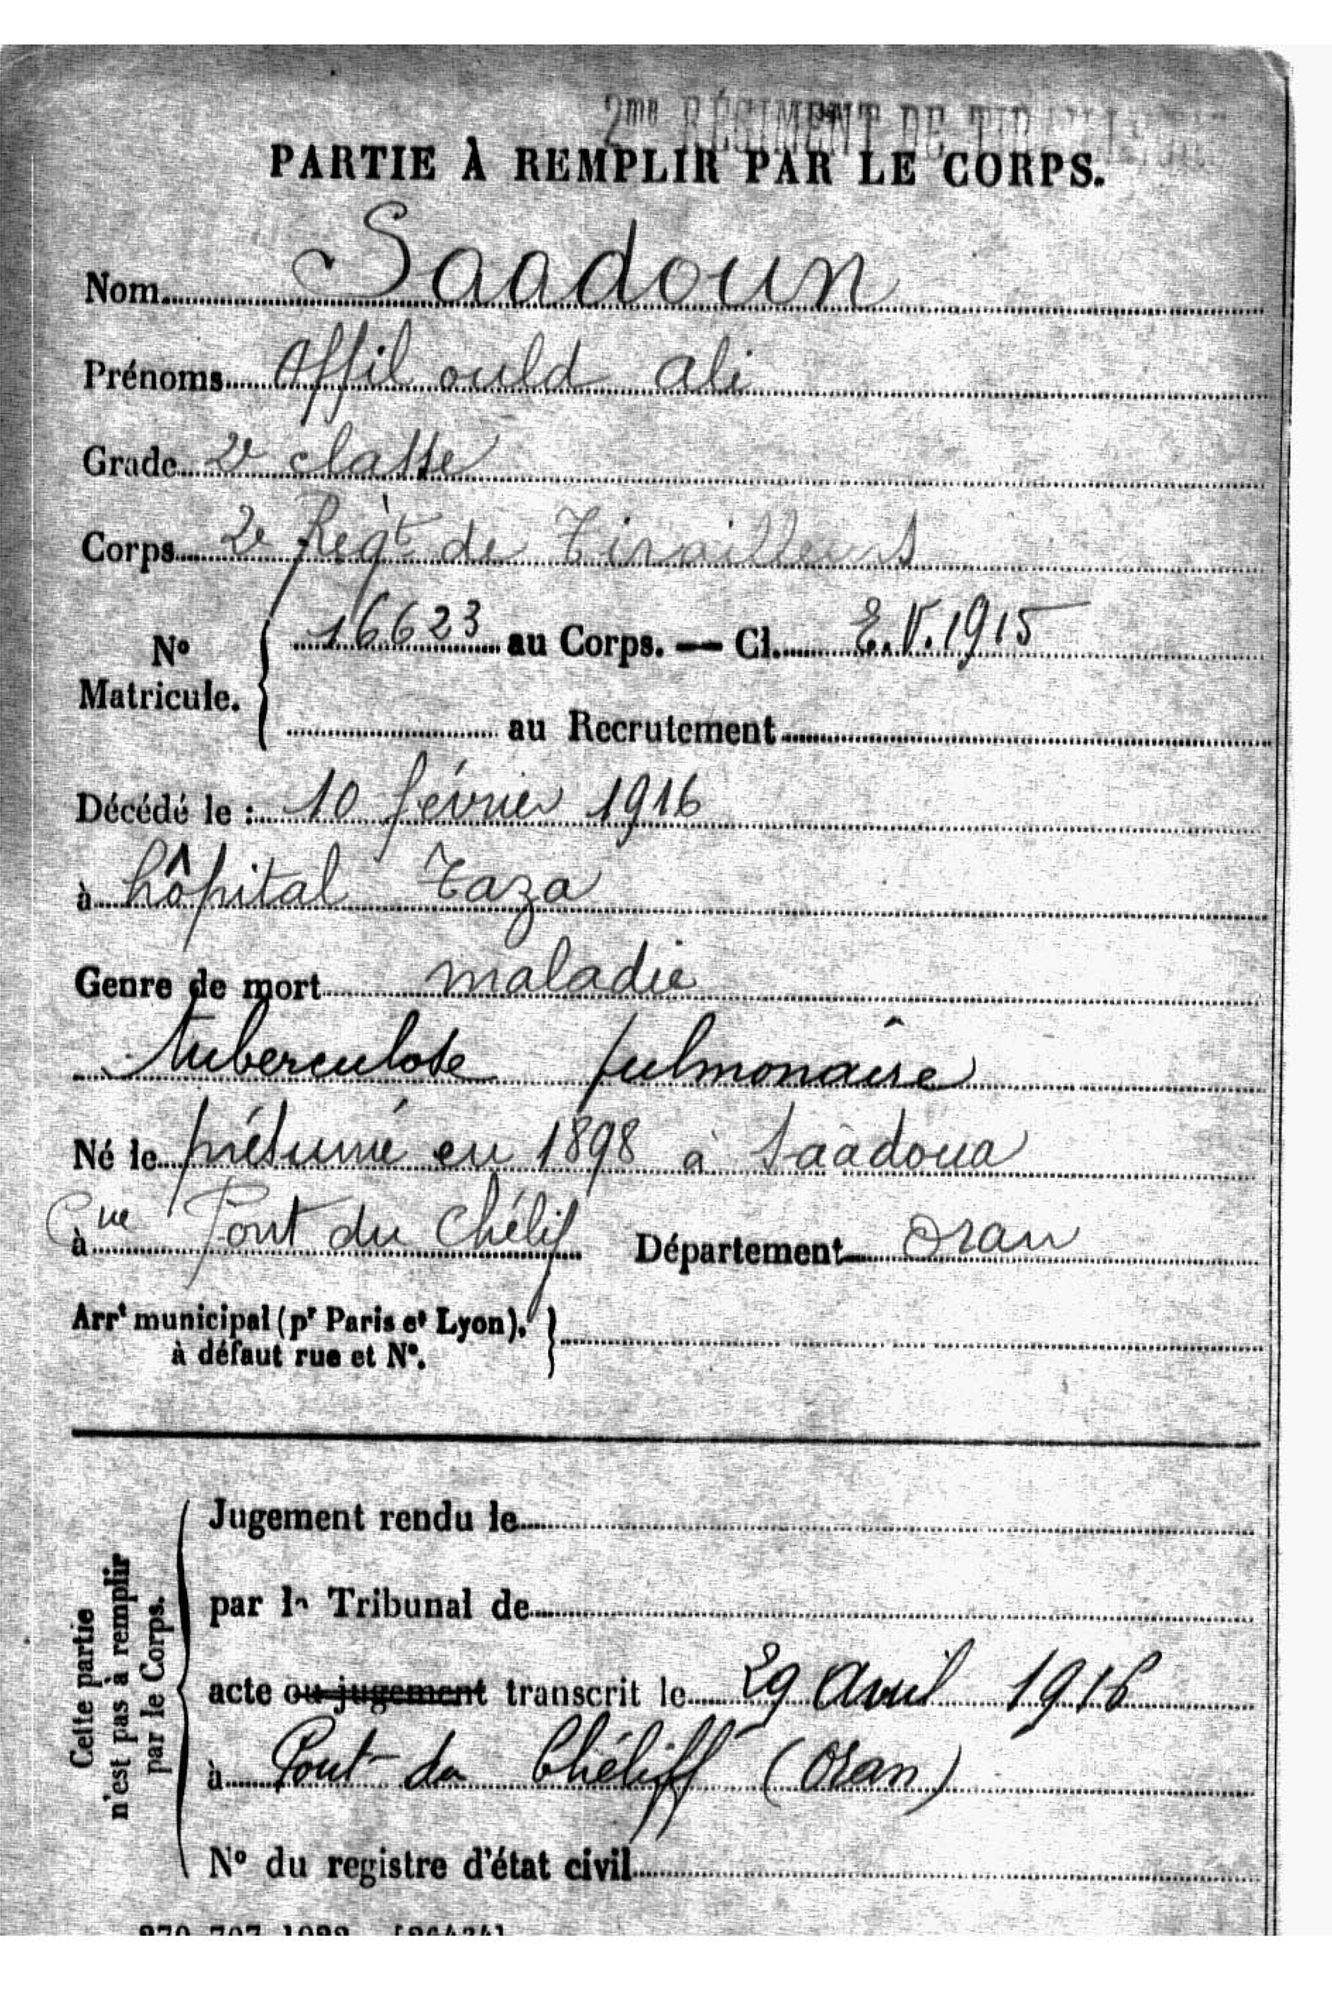 2me RÉGIMENT DE TIRAILLEURS
PARTIE À REMPLIR PAR LE CORPS.
Nom Saadoun
Prénoms Affil ould ali
Grade 2e classe
Corps 2e Régt de Tirailleurs
No Matricule. 16623 au Corps. — Cl. E.V. 1915
au Recrutement
Décédé le : 10 février 1916
à hôpital Taza
Genre de mort maladie
tuberculose pulmonaire
Né le présumé en 1898 à Saadoua
à Cne Pont du Chélif Département Oran
Arrt municipal (pr Paris et Lyon),
à défaut rue et No.
Cette partie
n'est pas à remplir
par le Corps.
Jugement rendu le
par le Tribunal de
acte ou jugement transcrit le 29 Avril 1916
à Pont du Chéliff (Oran)
No du registre d'état civil